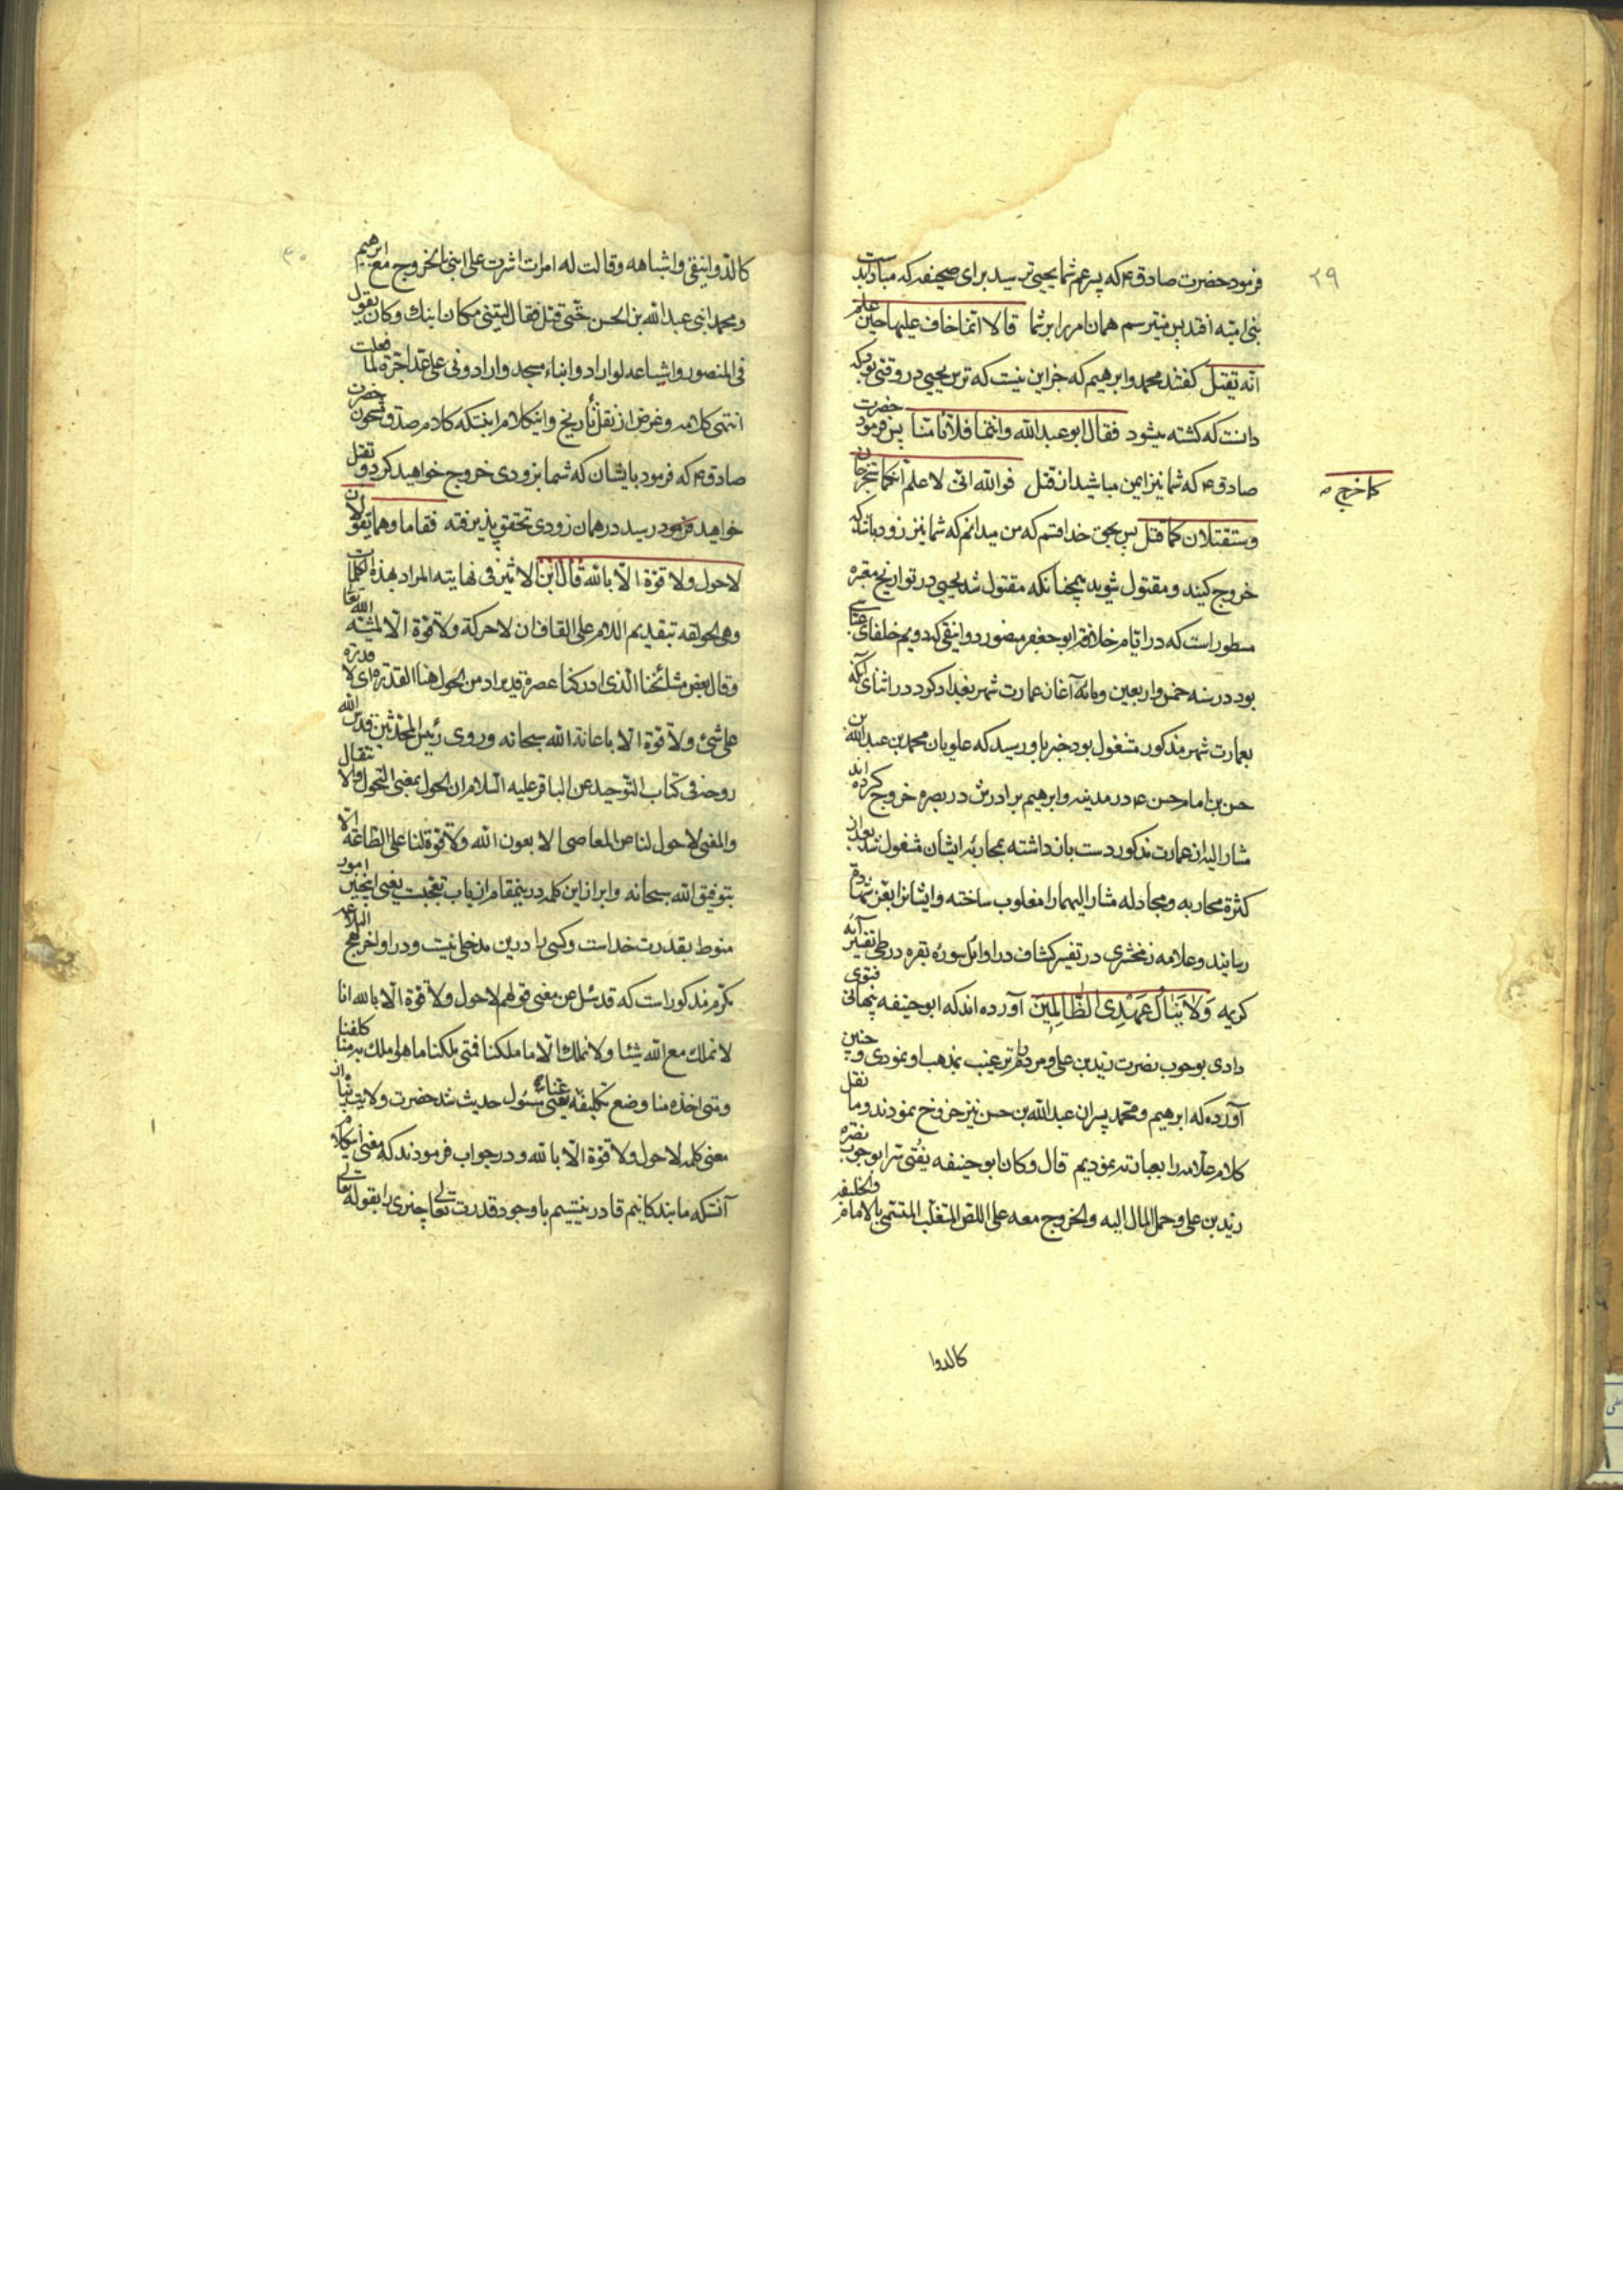 ۲۹
فرمود حضرت صادق ع که پسر عم شما یحیی ترسید برای صحیفه که مبادا بدست
بنی امیه افتد پس میترسم همان امر را بر شما قالا انما خاف علیها حین علم
انه یقتل گفتند محمد و ابرهیم که جز این نیست که ترس یحیی در وقتی بود که
دانست که کشته میشود فقال ابو عبدالله وانتما فلا تامنا پس فرمود حضرت
صادق ع که شما نیز ایمن مباشید از قتل فوالله انی لا علم انکما ستخرجان
کما خرج
وستقتلان کما قتل پس بحق خدا قسم که من میدانم که شما نیز زود باشد که
خروج کنید و مقتول شوید همچنانکه مقتول شد یحیی در تواریخ معتبره
مسطور است که در ایام خلافت ابو جعفر منصور دوانیقی که دویم خلفای عباسی
بود در سنه خمس و اربعین و مائه آغاز عمارت شهر بغداد کرد در اثنای آنکه
بعمارت شهر مذکور مشغول بود خبر باو رسید که علویان محمد بن عبدالله بن
حسن بن امام حسن ع در مدینه و ابرهیم برادرش در بصره خروج کرده اند
مشار الیه از عمارت مذکور دست باز داشته بمحاربه ایشان مشغول شد بعد از
کثرة محاربه و مجادله مشار الیهما را مغلوب ساخته و ایشانرا بعز شهادة
رسانید و علامه زمخشری در تفسیر کشاف در اوائل سوره بقره در طی تفسیر آیه
کریمه وَلَا یَنَالُ عَهْدِی الظَّالِمِینَ آورده اند که ابو حنیفه پنهانی فتوی
دادی بوجوب نصرت زید بن علی و مردم را ترغیب بمذهب او نمودی و چنین
آورده که ابرهیم و محمد پسران عبدالله بن حسن نیز خروج نمودند و ما نقل
کلام علامه را بعبارته نمودیم قال وکان ابو حنیفه یفتی سرا بوجوب نصره
زید بن علی وحمل المال الیه والخروج معه علی اللص المتغلب المتسمی بالامام والخلیفه
کالدوا
۳۰
کالدوانیقی واشباهه وقالت له امرات اشرت علی ابنی بالخروج مع ابرهیم
ومحمد ابنی عبدالله بن الحسن حتی قتل فقال لیتنی مکان ابنک وکان یقول
فی المنصور واشیاعه لو ارادوا بناء مسجد وارادونی علی عد اجره لما فعلت
انتهی کلامه و غرض از نقل تاریخ و اینکلام اینستکه کلام صدق مشحون حضرت
صادق ع که فرمود بایشان که شما بزودی خروج خواهید کرد و بقتل
خواهید رسید در همان زودی تحقق پذیرفته فقاما وهما یقولان
لا حول ولا قوة الا بالله قال ابن الاثیر فی نهایته المراد بهذه الکلمات
وهی الحولقه بتقدیم اللام علی القاف ان لا حرکة ولا قوة الا بمشیه الله تعا
وقال بعض مشائخنا الذی ادرکنا عصره قد یراد من الحول هنا القدرة ای لا قدرة
علی شئ ولا قوة الا باعانة الله سبحانه وروی رئیس المحدثین قدس الله
روحه فی کتاب التوحید عن الباقر علیه السلام ان الحول بمعنی التحول والانتقال
والمعنی لا حول لنا عن المعاصی الا بعون الله ولا قوة لنا علی الطاعة الا
بتوفیق الله سبحانه و ایراد این کلمه درینمقام از باب تعجبست یعنی اینچنین امور
منوط بقدرت خداست و کسی را درین مدخلی نیست و در اواخر نهج البلاغه
مکرم مذکور است که قد سئل عن معنی قولهم لا حول ولا قوة الا بالله انا
لا نملک مع الله شیئا ولا نملک الا ما ملکنا فمتی ملکنا ما هو املک به منا کلفنا
ومتی اخذه منا وضع تکلیفه عنا یعنی مسئول حدیث شد حضرت ولایت پناه از
معنی کلمه لا حول ولا قوة الا بالله و در جواب فرمودند که معنی اینکلام
آنستکه ما بندکانیم قادر نیستیم با وجود قدرت تعالی چیزی را بقوله تعالی